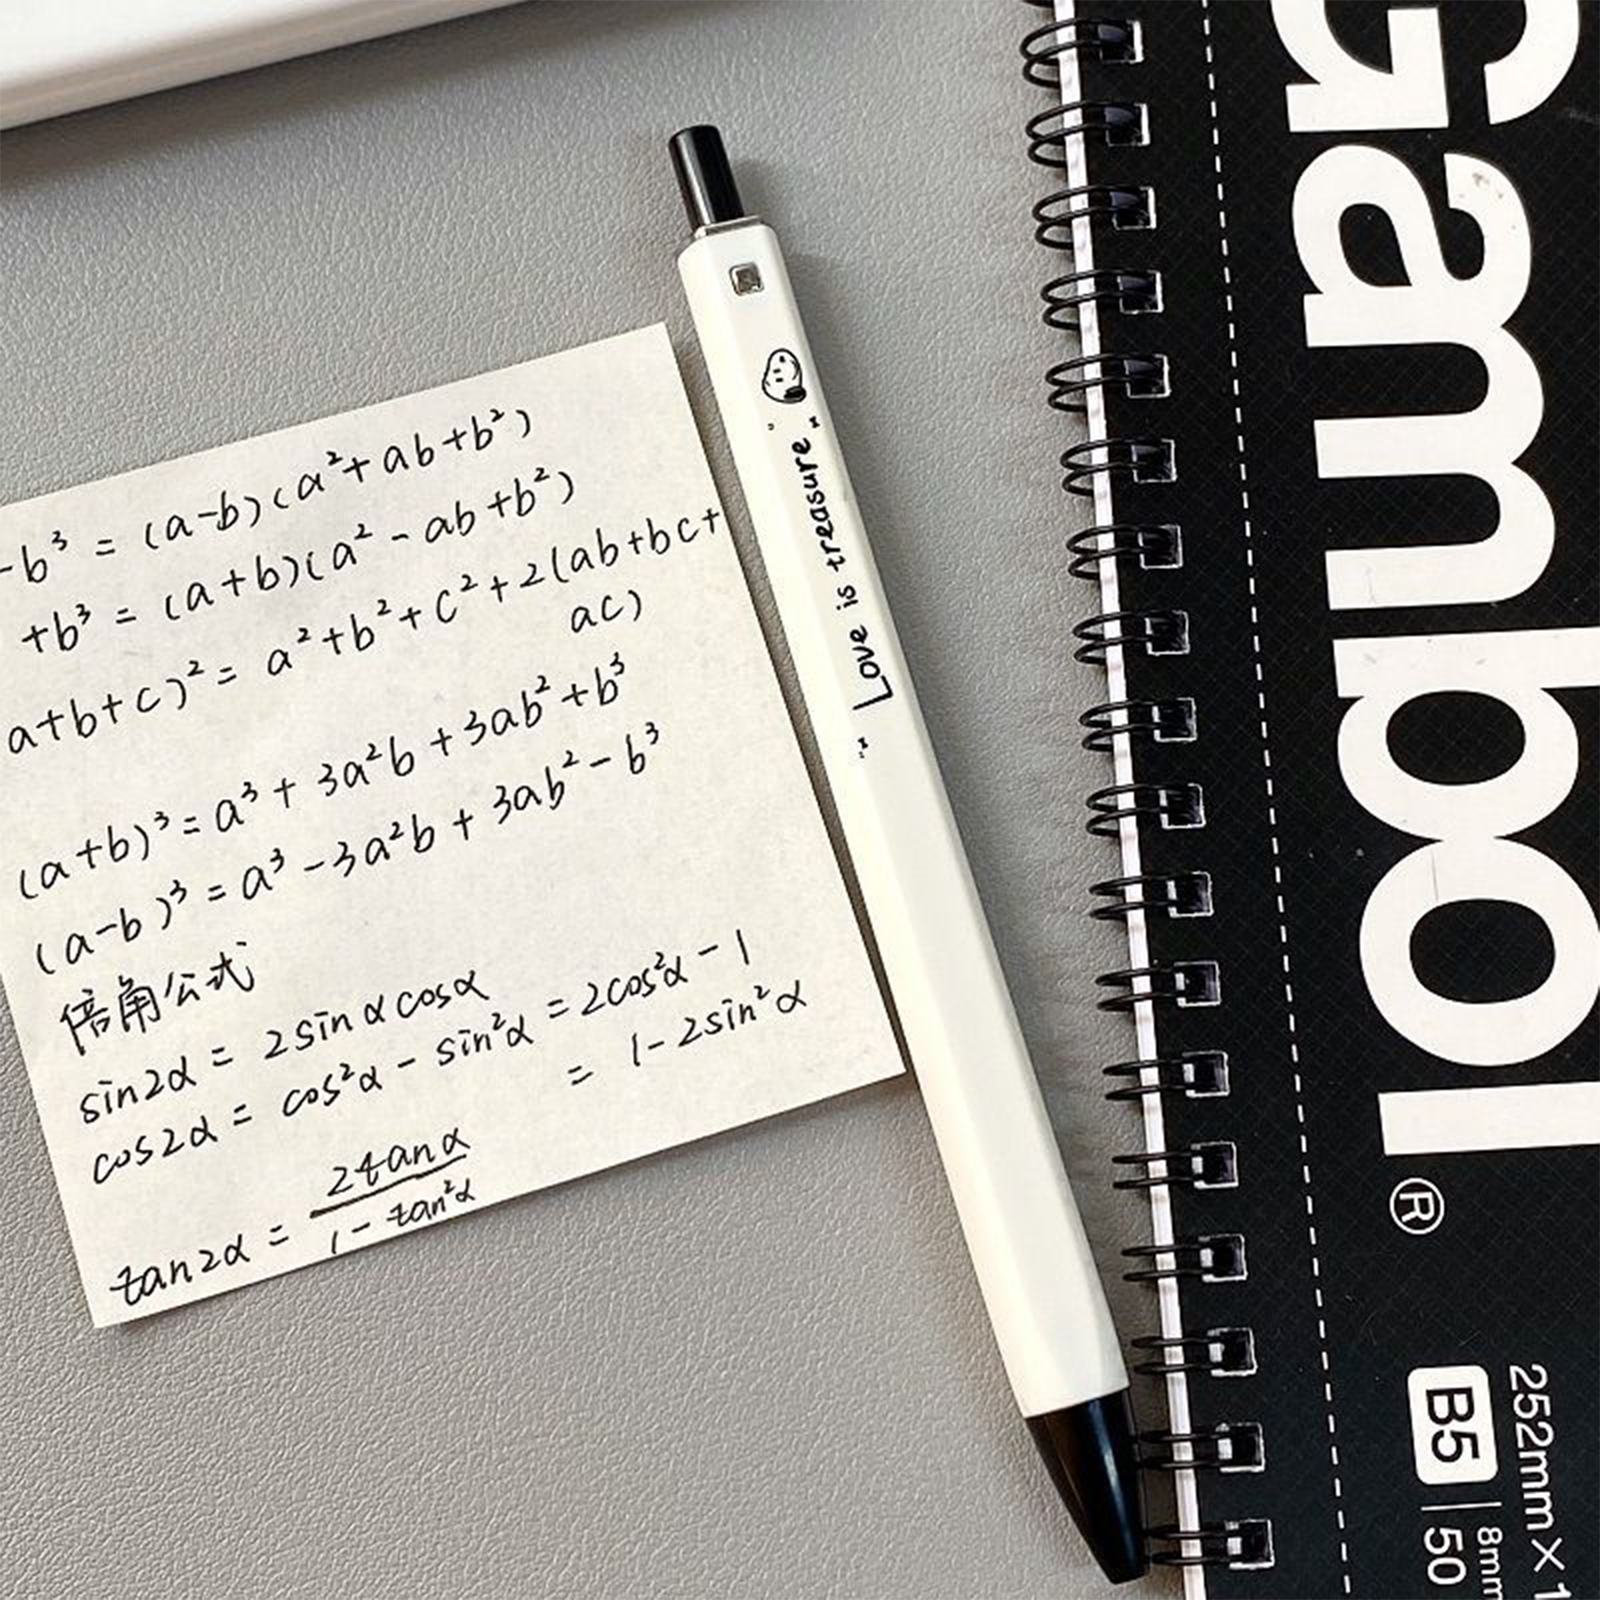 -b³ = (a-b)(a²+ab+b²)
+b³ = (a+b)(a²-ab+b²)
a+b+c)² = a²+b²+c²+2(ab+bc+
ac)
(a+b)³ = a³+3a²b+3ab²+b³
(a-b)³ = a³-3a²b+3ab²-b³
倍角公式
sin2α = 2sinαcosα
cos2α = cos²α - sin²α = 2cos²α - 1
= 1-2sin²α
tan2α = 2tanα / 1-tan²α
" Love is treasure "
Gambol®
B5 252mm×1
50 8mm